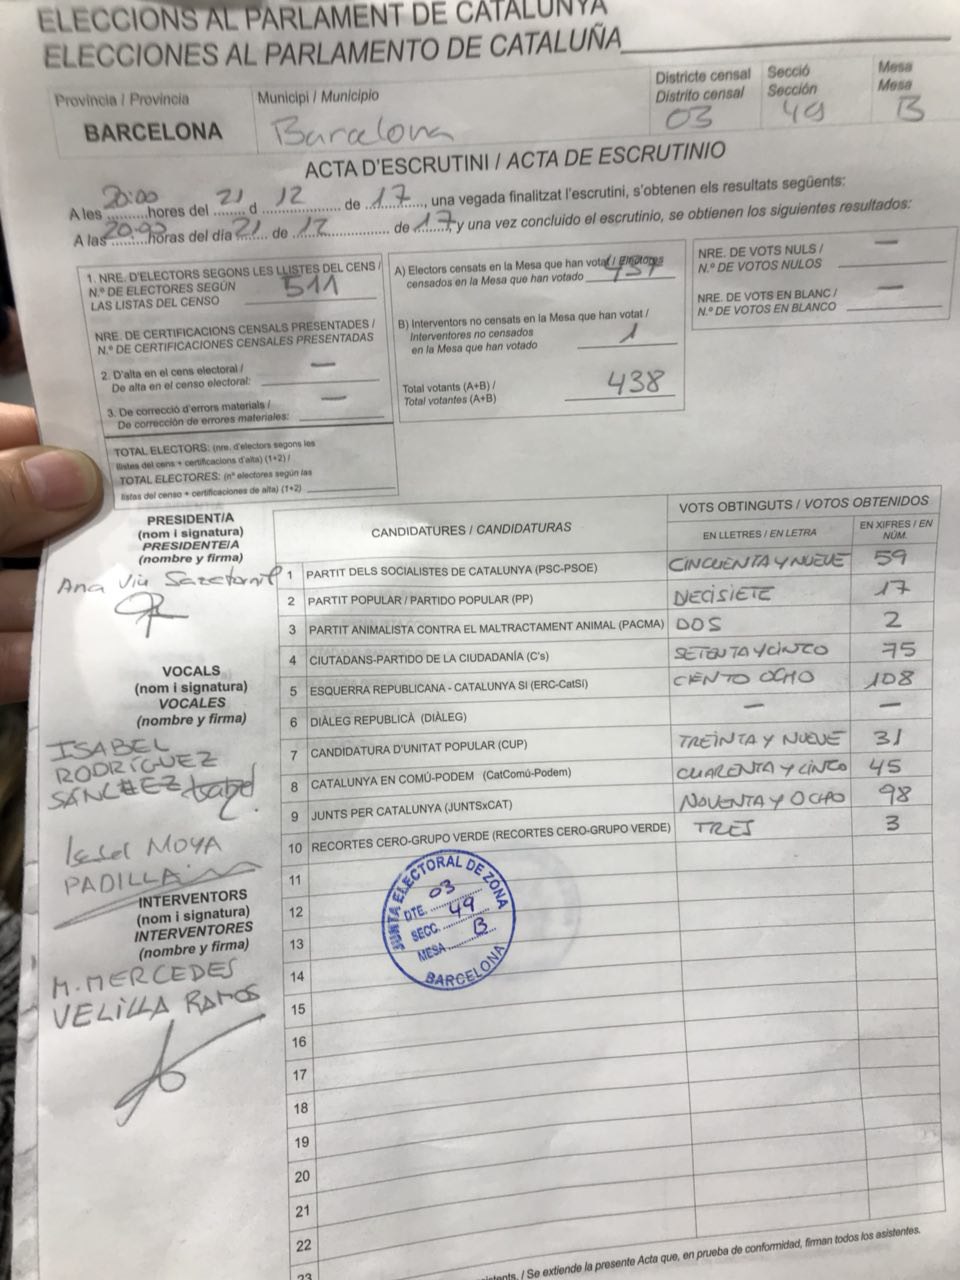 ELECCIONS AL PARLAMENT DE CATALUNYA
ELECCIONES AL PARLAMENTO DE CATALUÑA
Província / Provincia
BARCELONA
Municipi / Municipio
Barcelona
Districte censal
Distrito censal
03
Secció
Sección
49
Mesa
Mesa
B
ACTA D'ESCRUTINI / ACTA DE ESCRUTINIO
A les 20:00 hores del 21 d 12 de 17, una vegada finalitzat l'escrutini, s'obtenen els resultats següents:
A las horas del día 21 de 12 de 17 y una vez concluido el escrutinio, se obtienen los siguientes resultados:
1. NRE. D'ELECTORS SEGONS LES LLISTES DEL CENS /
N.º DE ELECTORES SEGÚN
LAS LISTAS DEL CENSO
511
NRE. DE CERTIFICACIONS CENSALS PRESENTADES /
N.º DE CERTIFICACIONES CENSALES PRESENTADAS
2. D'alta en el cens electoral /
De alta en el censo electoral: —
3. De correcció d'errors materials /
De corrección de errores materiales: —
TOTAL ELECTORS: (nre. d'electors segons les
llistes del cens + certificacions d'alta) (1+2) /
TOTAL ELECTORES: (nº electores según las
listas del censo + certificaciones de alta) (1+2)
A) Electors censats en la Mesa que han votat / Electores
censados en la Mesa que han votado 437
B) Interventors no censats en la Mesa que han votat /
Interventores no censados
en la Mesa que han votado 1
Total votants (A+B) /
Total votantes (A+B) 438
NRE. DE VOTS NULS /
N.º DE VOTOS NULOS —
NRE. DE VOTS EN BLANC /
N.º DE VOTOS EN BLANCO —
PRESIDENT/A
(nom i signatura)
PRESIDENTE/A
(nombre y firma)
Ana
VOCALS
(nom i signatura)
VOCALES
(nombre y firma)
ISABEL
RODRÍGUEZ
SÁNCHEZ Isabel
Isabel MOYA
PADILLA
INTERVENTORS
(nom i signatura)
INTERVENTORES
(nombre y firma)
M. MERCEDES
VELILLA RAMOS
CANDIDATURES / CANDIDATURAS
VOTS OBTINGUTS / VOTOS OBTENIDOS
EN LLETRES / EN LETRA
EN XIFRES / EN
NÚM.
1 PARTIT DELS SOCIALISTES DE CATALUNYA (PSC-PSOE) CINCUENTA Y NUEVE 59
2 PARTIT POPULAR / PARTIDO POPULAR (PP) DIECISIETE 17
3 PARTIT ANIMALISTA CONTRA EL MALTRACTAMENT ANIMAL (PACMA) DOS 2
4 CIUTADANS-PARTIDO DE LA CIUDADANÍA (C's) SETENTA Y CINCO 75
5 ESQUERRA REPUBLICANA - CATALUNYA SI (ERC-CatSí) CIENTO OCHO 108
6 DIÀLEG REPUBLICÀ (DIÀLEG) — —
7 CANDIDATURA D'UNITAT POPULAR (CUP) TREINTA Y NUEVE 31
8 CATALUNYA EN COMÚ-PODEM (CatComú-Podem) CUARENTA Y CINCO 45
9 JUNTS PER CATALUNYA (JUNTSxCAT) NOVENTA Y OCHO 98
10 RECORTES CERO-GRUPO VERDE (RECORTES CERO-GRUPO VERDE) TRES 3
11
12
13
14
15
16
17
18
19
20
21
22
23
JUNTA ELECTORAL DE ZONA
DTE. 03
SECC. 49
MESA B
BARCELONA
/ Se extiende la presente Acta que, en prueba de conformidad, firman todos los asistentes.